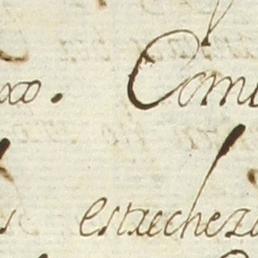 xo. Com
s estrecheza